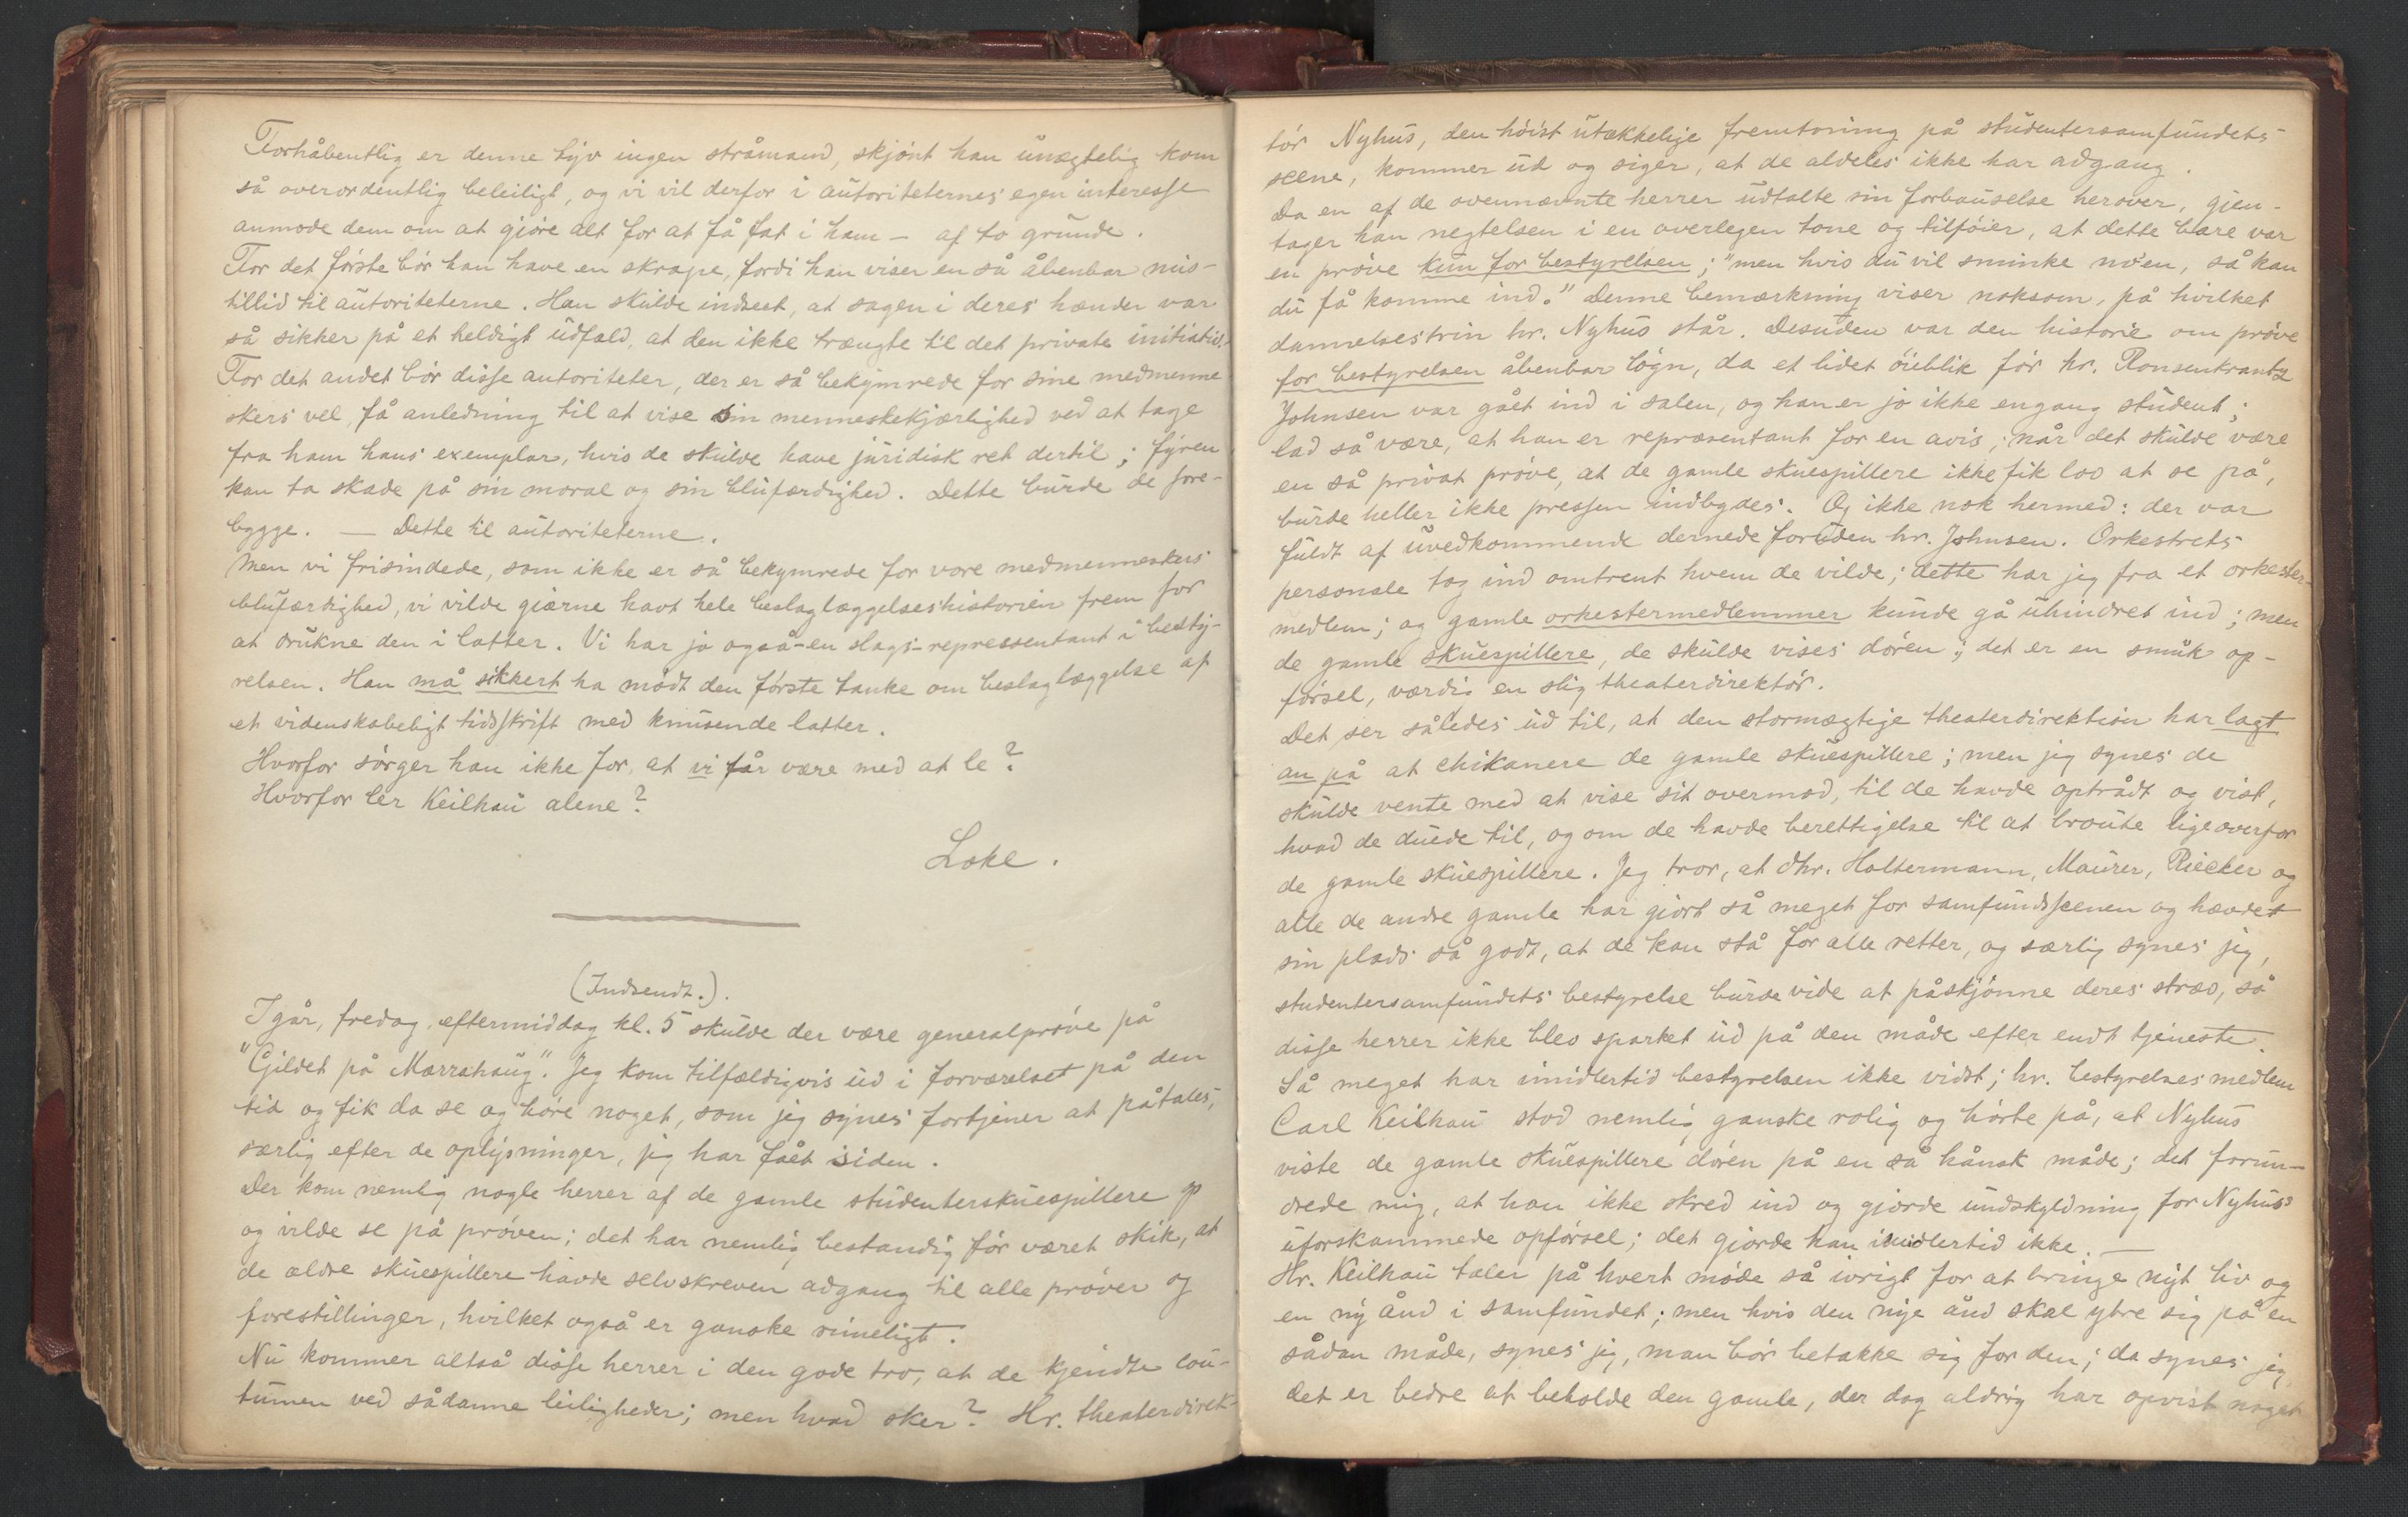 Forhåbentlig er denne tyv ingen stråmand, skjønt han unægtelig kom
så overordentlig beleiligt, og vi vil derfor i autoriteternes egen interesse
anmode dem om at gjøre alt for at få fat i ham – af to grunde.
For det første bør han have en skrape, fordi han viser en så åbenbar mis-
tillid til autoriteterne. Han skulde indseet, at sagen i deres hænder var
så sikker på et heldigt udfald, at den ikke trængte til det private initiativ.
For det andet bør disse autoriteter, der er så bekymrede for sine medmenne
skers vel, få anledning til at vise sin menneskekjærlighed ved at tage
fra ham hans exemplar, hvis de skulde have juridisk ret dertil; fyren
kan ta skade på sin moral og sin blufærdighed. Dette burde de fore-
bygge. — Dette til autoriteterne.
Men vi frisindede, som ikke er så bekymrede for vore medmenneskers
blufærdighed, vi vilde gjærne havt hele beslaglæggelseshistorien frem for
at drukne den i latter. Vi har jo også-en slags-repressentant i besty-
relsen. Han må sikkert ha mødt den første tanke om beslaglæggelse af
et videnskabeligt tidsskrift med knusende latter.
Hvorfor sørger han ikke for, at vi får være med at le?
Hvorfor ler Keilhau alene?
Loke.
(Indsendt.).
Igår, fredag, eftermiddag kl. 5 skulde der være generalprøve på
"Gildet på Mærrahaug". Jeg kom tilfældigvis ud i forværelset på den
tid og fik da se og høre noget, som jeg synes fortjener at påtales,
særlig efter de oplysninger, jeg har fået siden.
Der kom nemlig nogle herrer af de gamle studenterskuespillere op
og vilde se på prøven; det har nemlig bestandig før været skik, at
de ældre skuespillere havde selvskreven adgang til alle prøver og
forestillinger, hvilket også er ganske rimeligt.
Nu kommer altså disse herrer i den gode tro, at de kjendte cou-
tumen ved sådanne leiligheder; men hvad sker? Hr. theaterdirek-
tør Nyhus, den høist utækkelige fremtoning på studentersamfundets
scene, kommer ud og siger, at de aldeles ikke har adgang.
Da en af de ovennævnte herrer udtalte sin forbauselse herover, gjen-
tager han negtelsen i en overlegen tone og tilføier, at dette bare var
en prøve kun for bestyrelsen; "men hvis du vil sminke no'en, så kan
du få komme ind." Denne bemærkning viser noksom, på hvilket
dannelsestrin hr. Nyhus står. Desuden var den historie om prøve
for bestyrelsen åbenbar løgn, da et lidet øieblik før hr. Ronsenkrantz
Johnsen var gået ind i salen, og han er jo ikke engang student;
lad så være, at han er repræsentant for en avis; når det skulde være
en så privat prøve, at de gamle skuespillere ikke fik lov at se på,
burde heller ikke pressen indbydes. Og ikke nok hermed: der var
fuldt af uvedkommende dernede foruden hr. Johnsen. Orkestrets
personale tog ind omtrent hvem de vilde; dette har jeg fra et orkester-
medlem; og gamle orkestermedlemmer kunde gå uhindret ind; men
de gamle skuespillere, de skulde vises døren; det er en smuk op-
førsel, værdig en slig theaterdirektør.
Det ser således ud til, at den stormægtige theaterdirektion har lagt
an på at chikanere de gamle skuespillere; men jeg synes de
skulde vente med at vise sit overmod, til de havde optrådt og vist,
hvad de duede til, og om de havde berettigelse til at broute ligeoverfor
de gamle skuespillere. Jeg tror, at dhr. Haltermann, Maurer, Riecker og
alle de andre gamle har gjort så meget for samfundsscenen og hævdet
sin plads så godt, at de kan stå for alle retter, og særlig synes jeg,
studentersamfundets bestyrelse burde vide at påskjønne deres stræv, så
disse herrer ikke blev sparket ud på den måde efter endt tjeneste.
Så meget har imidlertid bestyrelsen ikke vidst; hr. bestyrelsesmedlem
Carl Keilhau stod nemlig ganske rolig og hørte på, at Nyhus
viste de gamle skuespillere døren på en så hånsk måde; det forun-
drede mig, at han ikke skred ind og gjorde undskyldning for Nyhus's
uforskammede opførsel; det gjorde han imidlertid ikke. —
Hr. Keilhau taler på hvert møde så ivrigt for at bringe nyt liv og
en ny ånd i samfundet; men hvis den nye ånd skal ytre sig på en
sådan måde, synes jeg, man bør betakke sig for den; da synes jeg
det er bedre at beholde den gamle, der dog aldrig har opvist noget